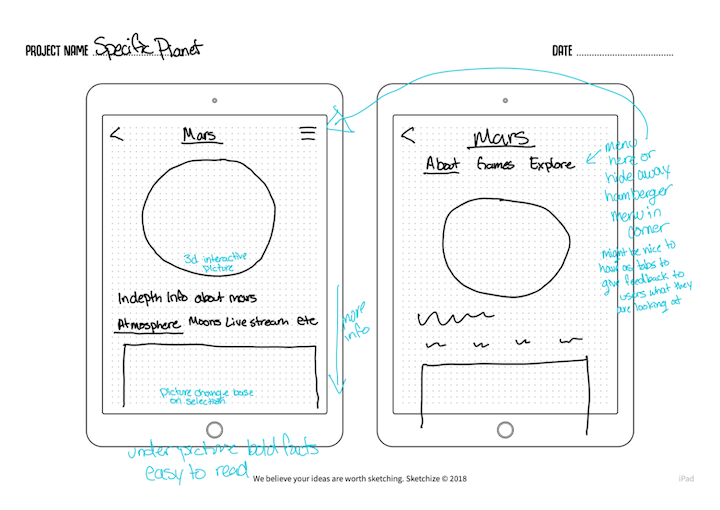 PROJECT NAME Specific Planet
DATE
< Mars
3d interactive
picture
Indepth Info about mars
Atmosphere Moons Livestream etc
Picture change base
on selection
more
info
under picture bold facts
easy to read
< Mars
About Games Explore
menu
here or
hide away
hamberger
menu in
corner
might be nice to
have as tabs to
give feedback to
users what they
are looking at
We believe your ideas are worth sketching. Sketchize © 2018
iPad